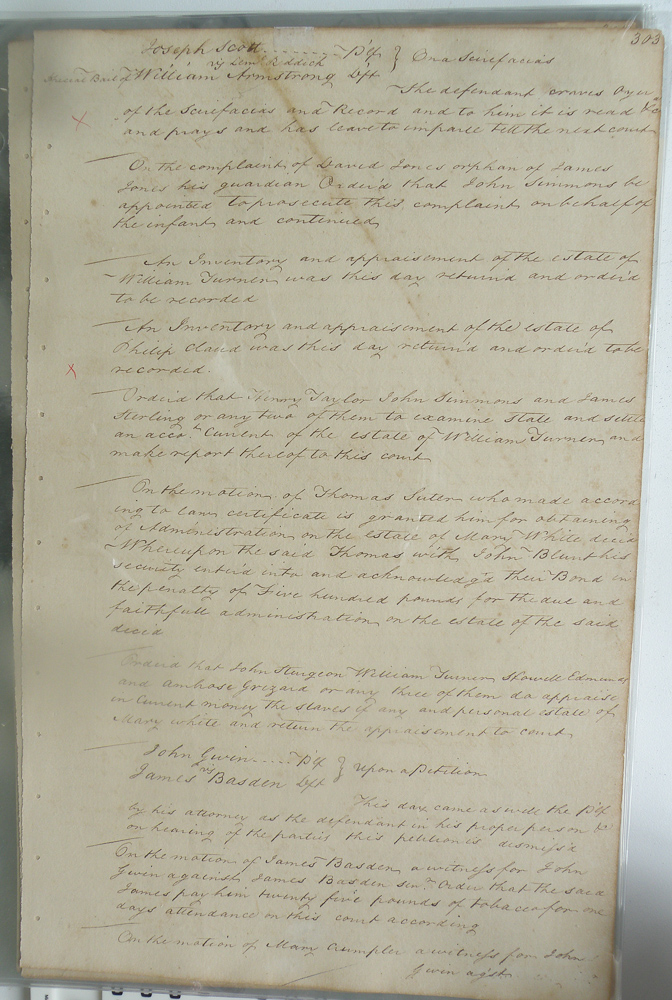 303
Joseph Scott ...... Plf } On a Scirefacias
vs Lem: Riddick
Special Bail of William Armstrong Dft
The defendant craves Oyer
of the Scirefacias and Record and to him it is read &c
and prays and has leave to imparle till the next court
On the complaint of David Jones orphan of James
Jones his guardian Order'd that John Simmons be
appointed to prosecute this complaint on behalf of
the infant and continued
An Inventory and appraisement of the estate of
William Turner was this day return'd and order'd
to be recorded
An Inventory and appraisement of the estate of
Philip Claud was this day return'd and order'd to be
recorded.
Order'd that Henry Taylor John Simmons and James
Sterling or any two of them to examine state and settle
an acco.t Current of the estate of William Turner and
make report thereof to this court
On the motion of Thomas Suter who made accord
ing to law certificate is granted him for obtaining
of Administration on the estate of Mary White dec'd
Whereupon the said Thomas with John Blunt his
security enter'd into and acknowledg'd their Bond in
the penalty of Five hundred pounds for the due and
faithfull administration on the estate of the said
dec'd
Order'd that John Sturgeon William Turner Howell Edmunds
and Ambose Grizard or any three of them do appraise
in Current money the slaves if any and personal estate of
Mary White and return the appraisement to court
John Gwin ..... Plf } Upon a Petition
vs
James Basden Dft
This day came as well the Plf
by his attorney as the defendant in his proper person &
on hearing of the parties this petition is dismiss'd
On the motion of James Basden a witness for John
Gwin against James Basden sen.r Order that the said
James pay him twenty five pounds of tobacco for one
days attendance on this court according
On the motion of Mary Crumpler a witness for John
Gwin agst